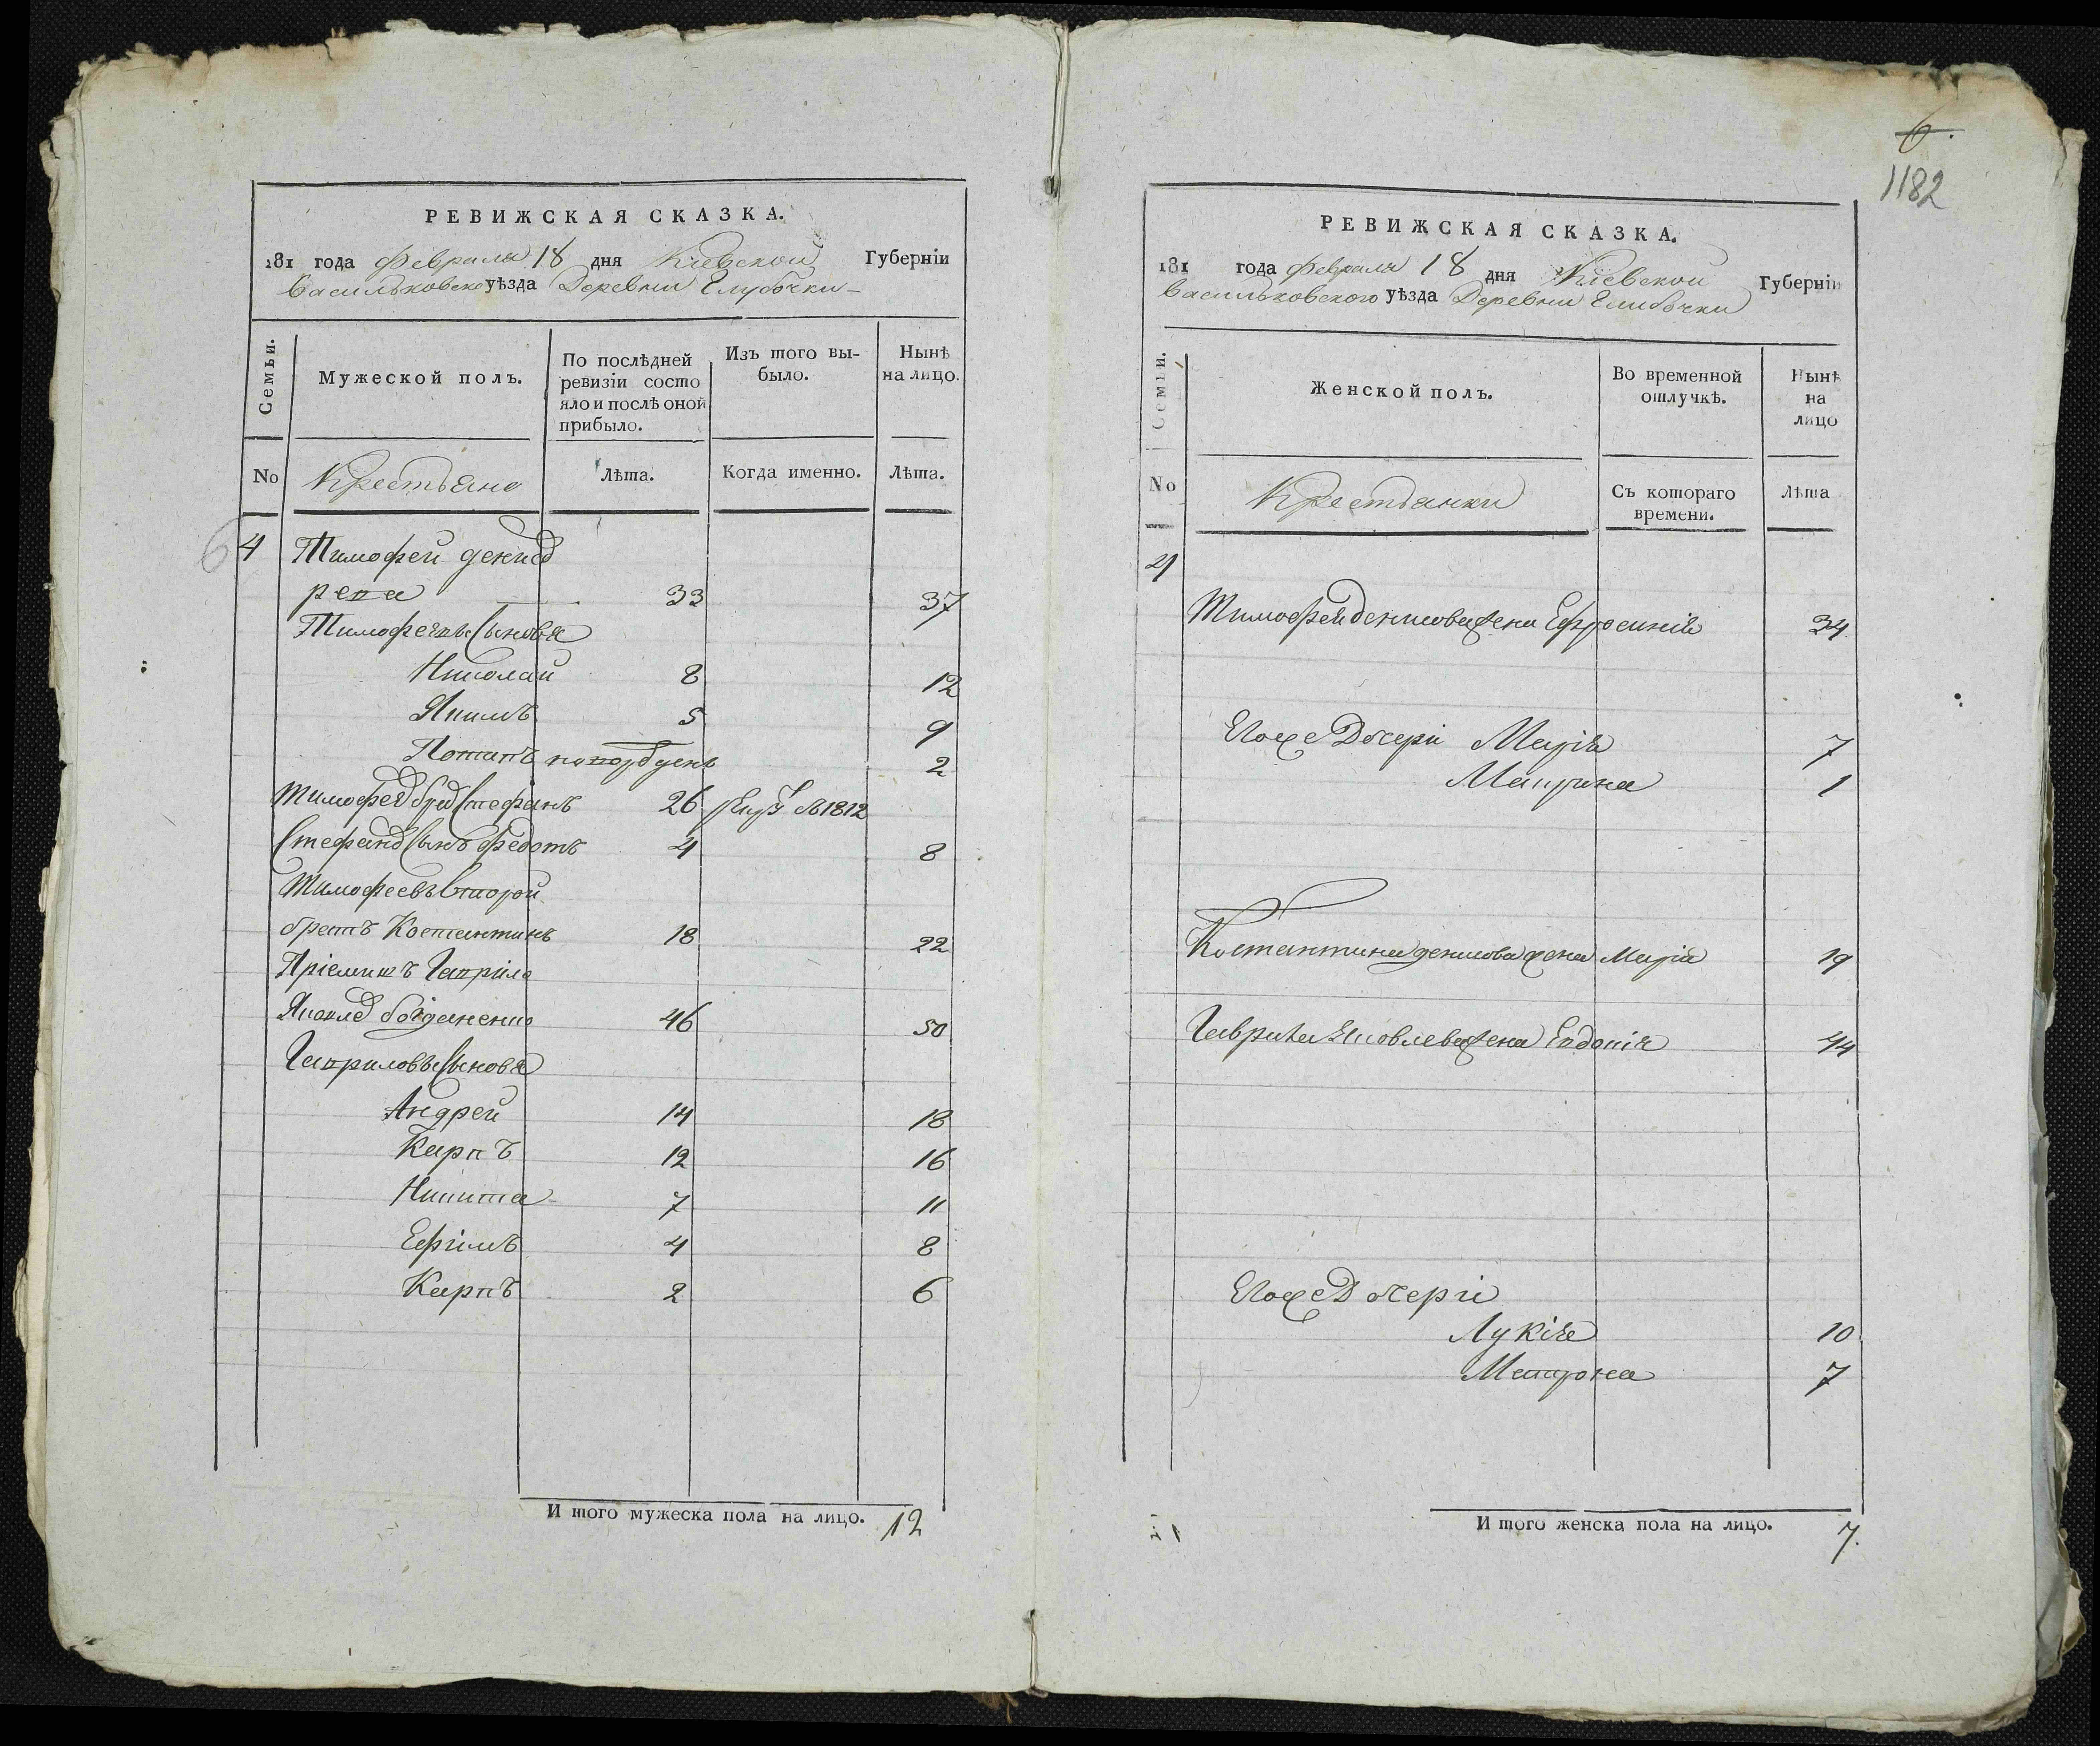 РЕВИЖСКАЯ СКАЗКА.
181 года февраля 18 дня Кіевской Губерніи
Васильковско уѣзда Деревни Глубочки
Семьи.
Мужеской полъ.
По послѣдней ревизіи состояло и послѣ оной прибыло.
Изъ того выбыло.
Нынѣ на лицо.
No
Крестьяне
Лѣта.
Когда именно.
Лѣта.
4 Тимофей денисо
репа 33 37
Тимофеевы Сыновя
Николай 8 12
Якимъ 5 9
Потапъ новорожденъ 2
Тимофеев братъ Стефанъ 26 1812
Стефанов Сынъ Федотъ 4 8
Тимофеевъ Второй
братъ Костантинъ 18 22
Пріемишъ Гаврило
Яковлев богданенко 46 50
Гавриловы Сыновя
Андрей 14 18
Карпъ 12 16
Никита 7 11
Ефімъ 4 8
Карпъ 2 6
И того мужеска пола на лицо. 12
6.
1182
РЕВИЖСКАЯ СКАЗКА.
181 года февраля 18 дня Кіевской Губерніи
Васильковского уѣзда Деревни Глибочки
Семьи.
Женской полъ.
Во временной отлучкѣ.
Нынѣ на лицо
No
Крестьянки
Съ котораго времени.
Лѣта
4
Тимофея денисова жена Ефросинія 34
Егоже Дочери Марія 7
Матрина 1
Костантина денисова жена Марія 19
Гаврила Яковлева жена Евдокія 44
Егоже Дочери
Лукія 10
Матрона 7
И того женска пола на лицо. 7.